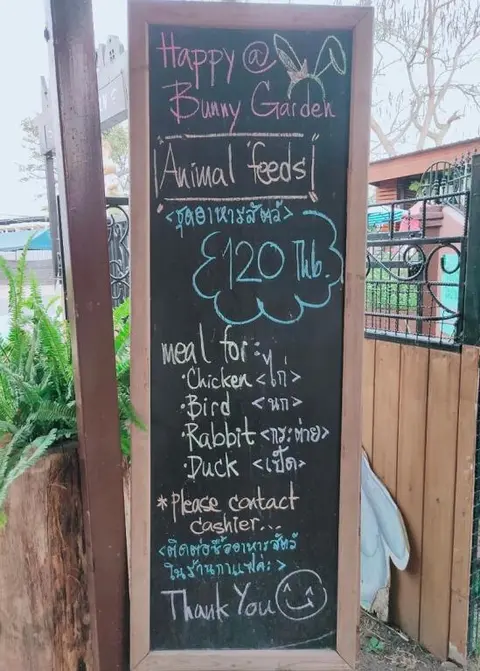 Happy @
Bunny Garden
Animal feeds
<ชุดอาหารสัตว์>
120 THB.
meal for:
·Chicken <ไก่>
·Bird <นก>
·Rabbit <กระต่าย>
·Duck <เป็ด>
*please contact
cashier...
<ติดต่อซื้ออาหารสัตว์
ในร้านกาแฟค่ะ>
Thank You